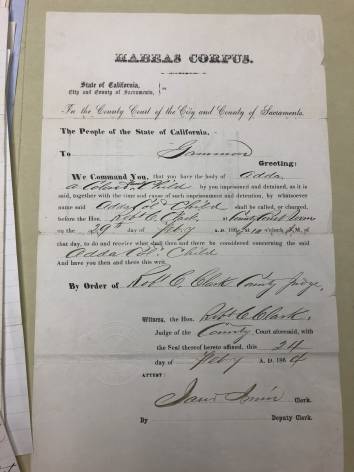 HABEAS CORPUS.
State of California,
City and County of Sacramento, } ss.
In the County Court of the City and County of Sacramento.
The People of the State of California,
To Gammon
Greeting:
We Command You, that you have the body of Adda
a Colored Child by you imprisoned and detained, as it is
said, together with the time and cause of such imprisonment and detention, by whatsoever
name said Adda Col'd Child shall be called, or charged,
before the Hon. Robt C. Clark, County Court Room
on the 29th day of Feby A. D. 186 at 10 o'clock, A. M. of
that day, to do and receive what shall then and there be considered concerning the said
Adda Col. Child
And have you then and there this writ.
By Order of Robt C. Clark County Judge,
Witness, the Hon. Robt C. Clark,
Judge of the County Court aforesaid, with
the Seal thereof hereto affixed, this 24
day of Feby A. D. 1864
ATTEST:
Clerk.
By Deputy Clerk.